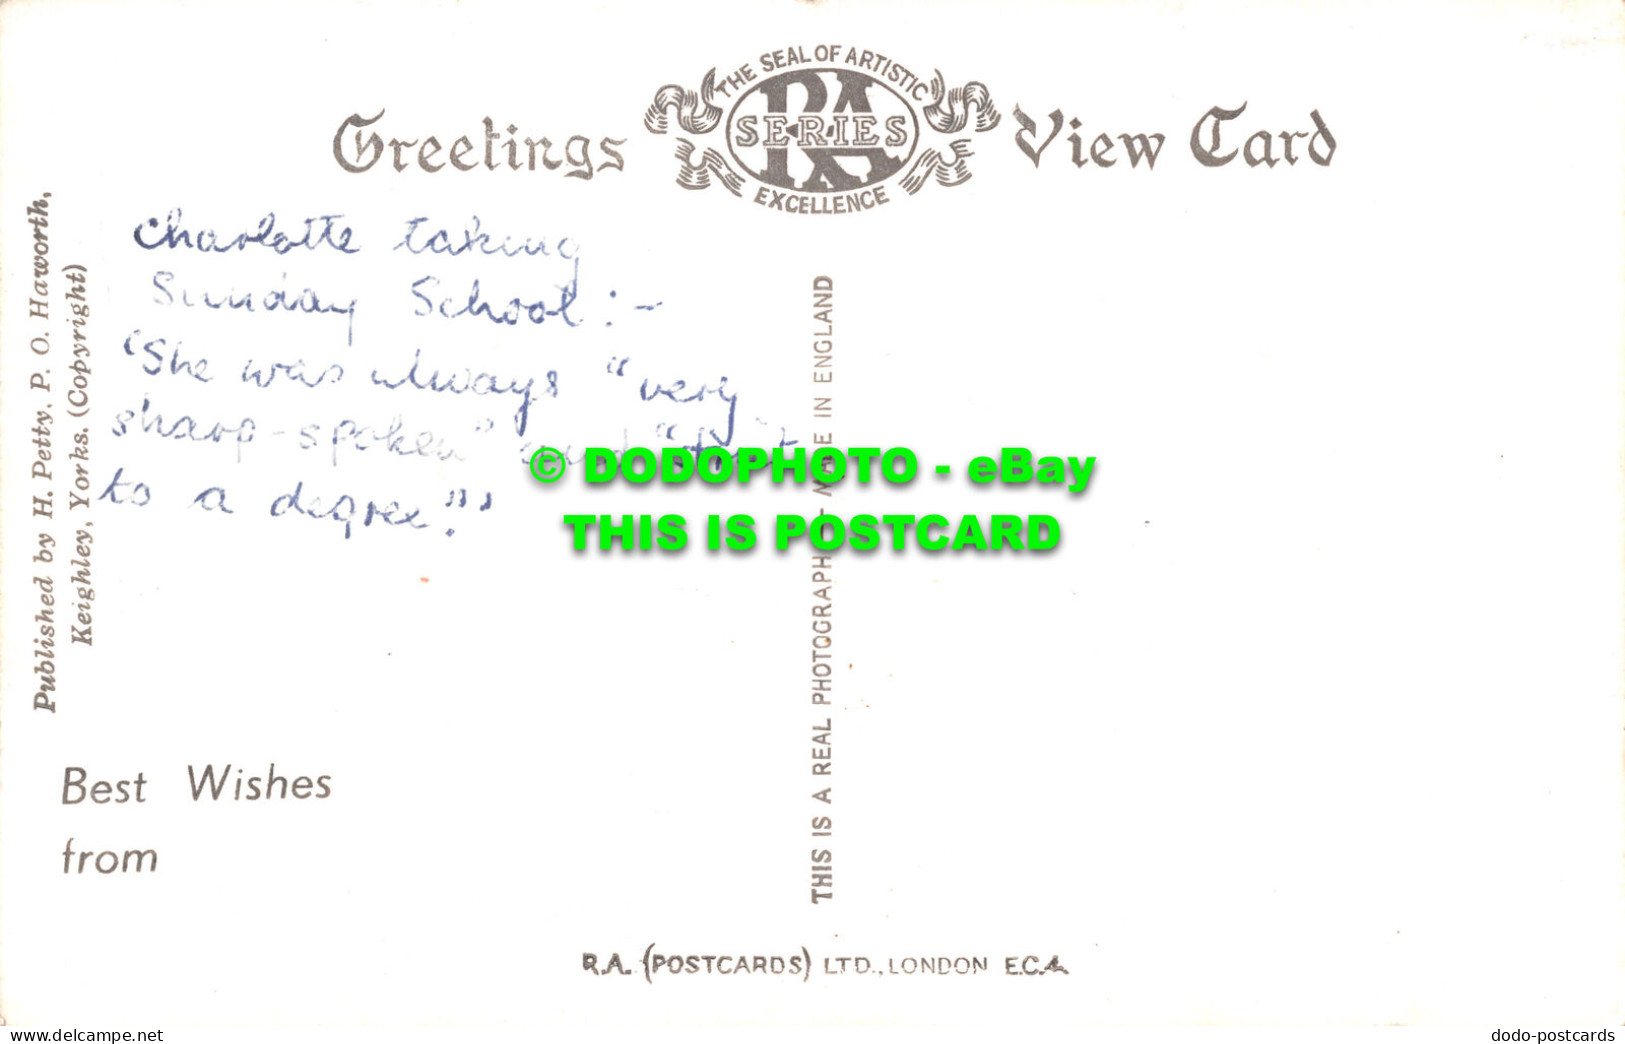 THE SEAL OF ARTISTIC
Greetings RA SERIES View Card
EXCELLENCE
Published by H. Petty, P. O. Haworth,
Keighley, Yorks. (Copyright)
Charlotte taking
Sunday School :-
"She was always "very
sharp-spoken" and
to a degree"."
© DODOPHOTO - eBay
THIS IS POSTCARD
THIS IS A REAL PHOTOGRAPH - MADE IN ENGLAND
Best Wishes
from
R.A. (POSTCARDS) LTD., LONDON E.C.4.
www.delcampe.net
dodo-postcards